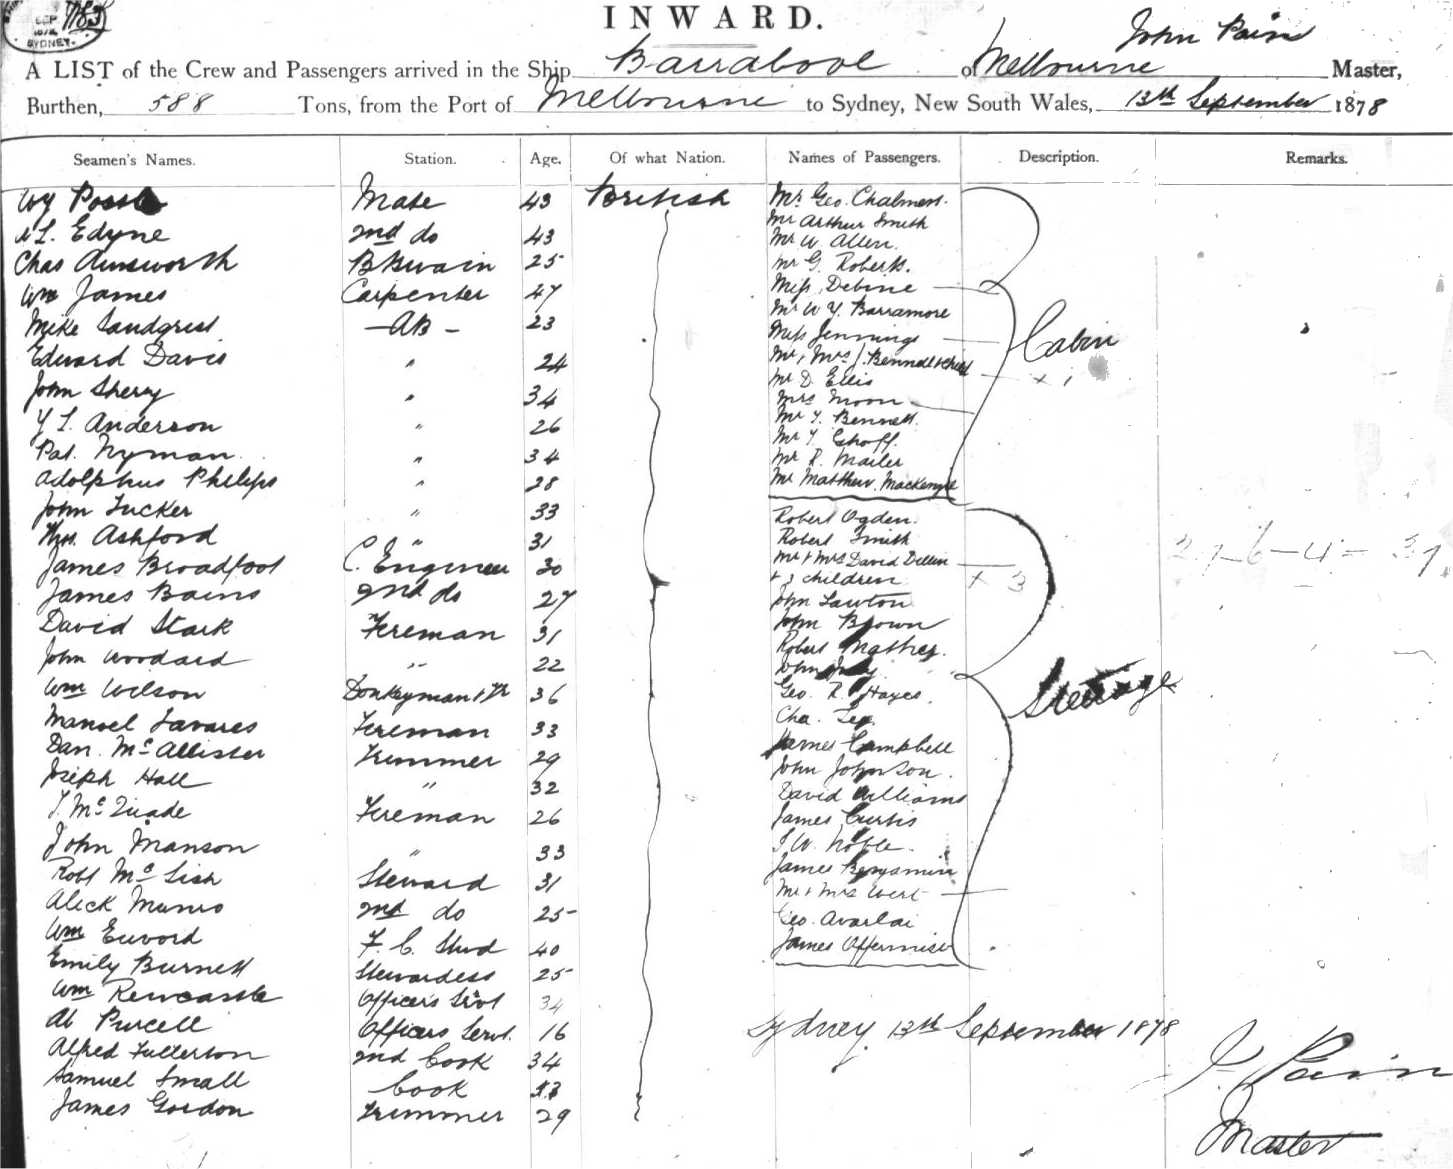 SEP
SYDNEY
INWARD.
John Pain
A LIST of the Crew and Passengers arrived in the Ship Barrabool of Melbourne Master,
Burthen, 588 Tons, from the Port of Melbourne to Sydney, New South Wales, 13th September 1878
Seamen's Names. Station. Age. Of what Nation. Names of Passengers. Description. Remarks.
Mate 43 British Mr Geo. Chalmers.
Mr Arthur Smith
L. Edyne 2nd do 43 Mr W Allen.
Chas Ainsworth 25 Mr G. Roberts.
Wm James Carpenter 47 Miss Debine
Mr W Y Barramore
Mike Sandgrist AB 23 Miss Jennings Cabin
Edward Davis " 24 Mr & Mrs J. & Child + 1
Mr D. Ellis
John Sherry " 34 Mrs Moon
Y L. Anderson " 26 Mr Y. Bennett.
Mr Y.
Pat. Nyman " 34 Mr R. Mailer
Adolphus Philips " 28 Mr Matthew Mackenzie
John Tucker " 33 Robert Ogden.
Ashford " 31 Robert Smith
James Broadfoot C. Engineer 30 Mr & Mrs David Dillen
+ 3 children + 3
James Bains 2nd do 27 John Lawton
David Stark Fireman 31 John Brown
Robert Mathey.
John Woodard " 22 John
Wm Wilson Donkeyman 36 Geo. R. Hayes. Steerage
Manoel Tavares Fireman 33 Cha. Lee.
Dan. McAllister Trimmer 29 James Campbell
Joseph Hall " 32 John Johnson.
David Williams
T. McQuade Fireman 26 James Curtis
John Manson " 33 J W. Noble.
Robt McLish Steward 31 James Benjamin
Mr & Mrs West
Alick Munro 2nd do 25 Geo.
Wm F. C. Stwd 40 James
Emily Burnett Stewardess 25
Wm Rewcastle Officers Servt 34
Al Purcell Officers Servt. 16 Sydney 13th September 1878
Alfred Fullerton 2nd Cook 34 J. Pain
Samuel Small Cook
James Gordon Trimmer 29 Master